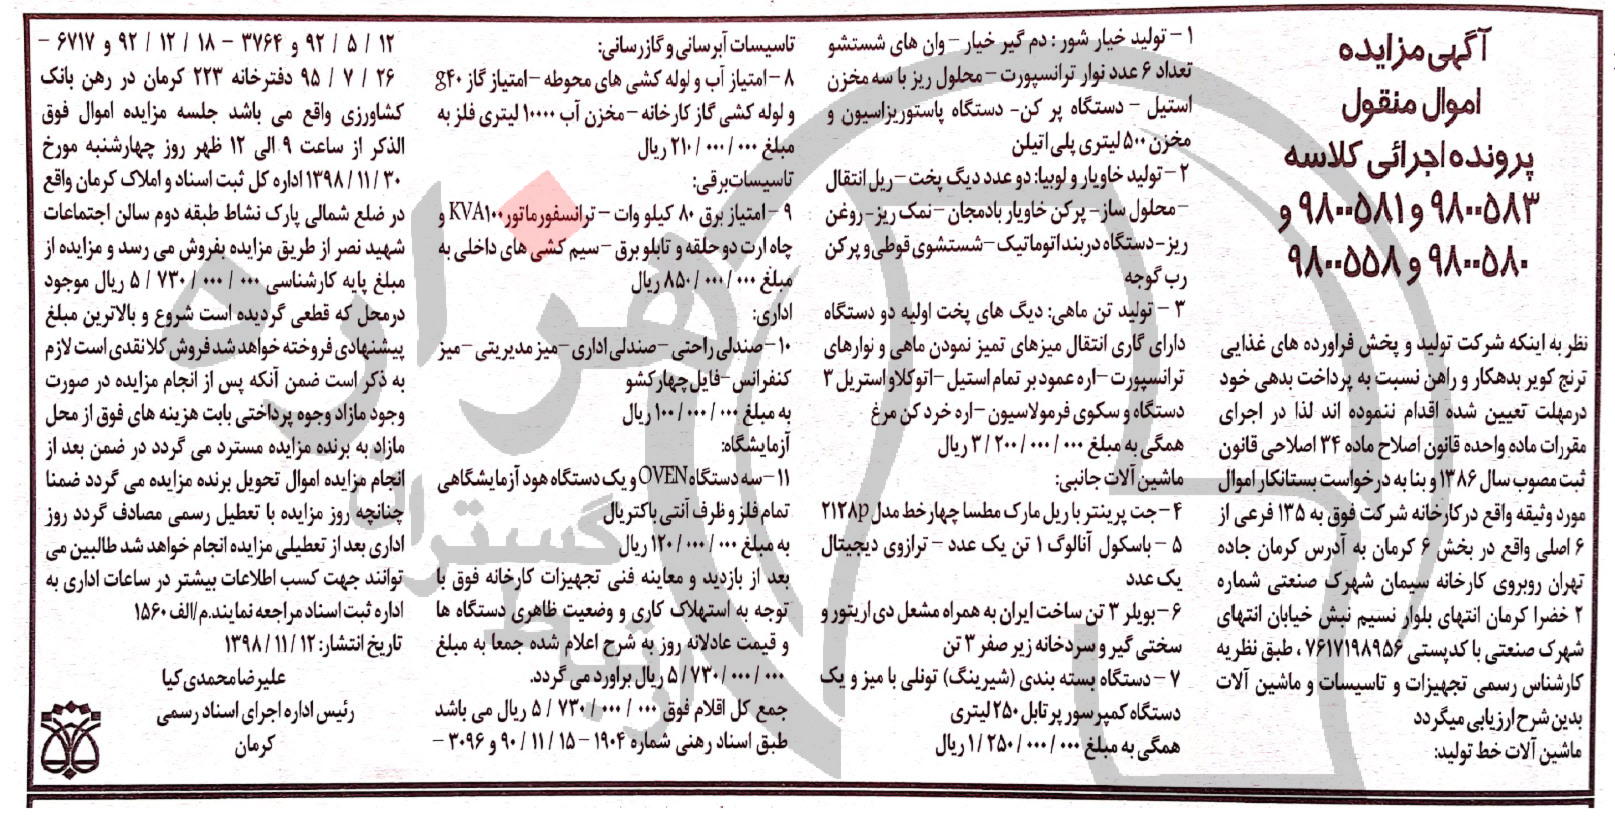 آگهی مزایده
اموال منقول
پرونده اجرائی کلاسه
۹۸۰۰۵۸۳ و ۹۸۰۰۵۸۱ و
۹۸۰۰۵۸۰ و ۹۸۰۰۵۵۸
نظر به اینکه شرکت تولید و پخش فراورده های غذایی
ترنج کویر بدهکار و راهن نسبت به پرداخت بدهی خود
درمهلت تعیین شده اقدام ننموده اند لذا در اجرای
مقررات ماده واحده قانون اصلاح ماده ۳۴ اصلاحی قانون
ثبت مصوب سال ۱۳۸۶ و بنا به درخواست بستانکار اموال
مورد وثیقه واقع درکارخانه شرکت فوق به ۱۳۵ فرعی از
۶ اصلی واقع در بخش ۶ کرمان به آدرس کرمان جاده
تهران روبروی کارخانه سیمان شهرک صنعتی شماره
۲ خضرا کرمان انتهای بلوار نسیم نبش خیابان انتهای
شهرک صنعتی با کدپستی ۷۶۱۷۱۹۸۹۵۶ ، طبق نظریه
کارشناس رسمی تجهیزات و تاسیسات و ماشین آلات
بدین شرح ارزیابی میگردد
ماشین آلات خط تولید:
۱- تولید خیار شور : دم گیر خیار – وان های شستشو
تعداد ۶ عدد نوار ترانسپورت – محلول ریز با سه مخزن
استیل – دستگاه پر کن- دستگاه پاستوریزاسیون و
مخزن ۵۰۰ لیتری پلی اتیلن
۲- تولید خاویار و لوبیا: دو عدد دیگ پخت – ریل انتقال
–محلول ساز- پرکن خاویار بادمجان – نمک ریز- روغن
ریز– دستگاه دربند اتوماتیک –شستشوی قوطی و پرکن
رب گوجه
۳ – تولید تن ماهی: دیگ های پخت اولیه دو دستگاه
دارای گاری انتقال میزهای تمیز نمودن ماهی و نوارهای
ترانسپورت –اره عمود بر تمام استیل –اتوکلاو استریل ۳
دستگاه و سکوی فرمولاسیون –اره خرد کن مرغ
همگی به مبلغ ۳/۲۰۰/۰۰۰/۰۰۰ ریال
ماشین آلات جانبی:
۴- جت پرینتر با ریل مارک مطسا چهارخط مدل ۲۱۲۸p
۵ – باسکول آنالوگ ۱ تن یک عدد – ترازوی دیجیتال
یک عدد
۶–بویلر ۳ تن ساخت ایران به همراه مشعل دی اریتور و
سختی گیر و سردخانه زیر صفر ۳ تن
۷– دستگاه بسته بندی (شیرینگ) تونلی با میز و یک
دستگاه کمپرسور پرتابل ۲۵۰ لیتری
همگی به مبلغ ۱/۲۵۰/۰۰۰/۰۰۰ ریال
تاسیسات آبرسانی و گازرسانی:
۸–امتیاز آب و لوله کشی های محوطه –امتیاز گاز g۴۰
و لوله کشی گاز کارخانه – مخزن آب ۱۰۰۰۰ لیتری فلز به
مبلغ ۲۱۰/۰۰۰/۰۰۰ ریال
تاسیسات برقی:
۹– امتیاز برق ۸۰ کیلو وات – ترانسفورماتور KVA۱۰۰ و
چاه ارت دو حلقه و تابلو برق – سیم کشی های داخلی به
مبلغ ۸۵۰/۰۰۰/۰۰۰ ریال
اداری:
۱۰–صندلی راحتی –صندلی اداری –میز مدیریتی –میز
کنفرانس –فایل چهار کشو
به مبلغ ۱۰۰/۰۰۰/۰۰۰ ریال
آزمایشگاه:
۱۱–سه دستگاه OVEN و یک دستگاه هود آزمایشگاهی
تمام فلز و ظرف آنتی باکتریال
به مبلغ ۱۲۰/۰۰۰/۰۰۰ ریال
بعد از بازدید و معاینه فنی تجهیزات کارخانه فوق با
توجه به استهلاک کاری و وضعیت ظاهری دستگاه ها
و قیمت عادلانه روز به شرح اعلام شده جمعا به مبلغ
۵/۷۳۰/۰۰۰/۰۰۰ ریال براورد می گردد.
جمع کل اقلام فوق ۵/۷۳۰/۰۰۰/۰۰۰ ریال می باشد
طبق اسناد رهنی شماره ۱۹۰۴ – ۹۰/۱۱/۱۵ و ۳۰۹۶ –
۹۲/۵/۱۲ و ۳۷۶۴ – ۹۲/۱۲/۱۸ و ۶۷۱۷ –
۹۵/۷/۲۶ دفترخانه ۲۲۳ کرمان در رهن بانک
کشاورزی واقع می باشد جلسه مزایده اموال فوق
الذکر از ساعت ۹ الی ۱۲ ظهر روز چهارشنبه مورخ
۱۳۹۸/۱۱/۳۰ اداره کل ثبت اسناد و املاک کرمان واقع
در ضلع شمالی پارک نشاط طبقه دوم سالن اجتماعات
شهید نصر از طریق مزایده بفروش می رسد و مزایده از
مبلغ پایه کارشناسی ۵/۷۳۰/۰۰۰/۰۰۰ ریال موجود
درمحل که قطعی گردیده است شروع و بالاترین مبلغ
پیشنهادی فروخته خواهد شد فروش کلا نقدی است لازم
به ذکر است ضمن آنکه پس از انجام مزایده در صورت
وجود مازاد وجوه پرداختی بابت هزینه های فوق از محل
مازاد به برنده مزایده مسترد می گردد در ضمن بعد از
انجام مزایده اموال تحویل برنده مزایده می گردد ضمنا
چنانچه روز مزایده با تعطیل رسمی مصادف گردد روز
اداری بعد از تعطیلی مزایده انجام خواهد شد طالبین می
توانند جهت کسب اطلاعات بیشتر در ساعات اداری به
اداره ثبت اسناد مراجعه نمایند.م/الف ۱۵۶۰
تاریخ انتشار: ۱۳۹۸/۱۱/۱۲
علیرضا محمدی کیا
رئیس اداره اجرای اسناد رسمی
کرمان
هزاره
گستران